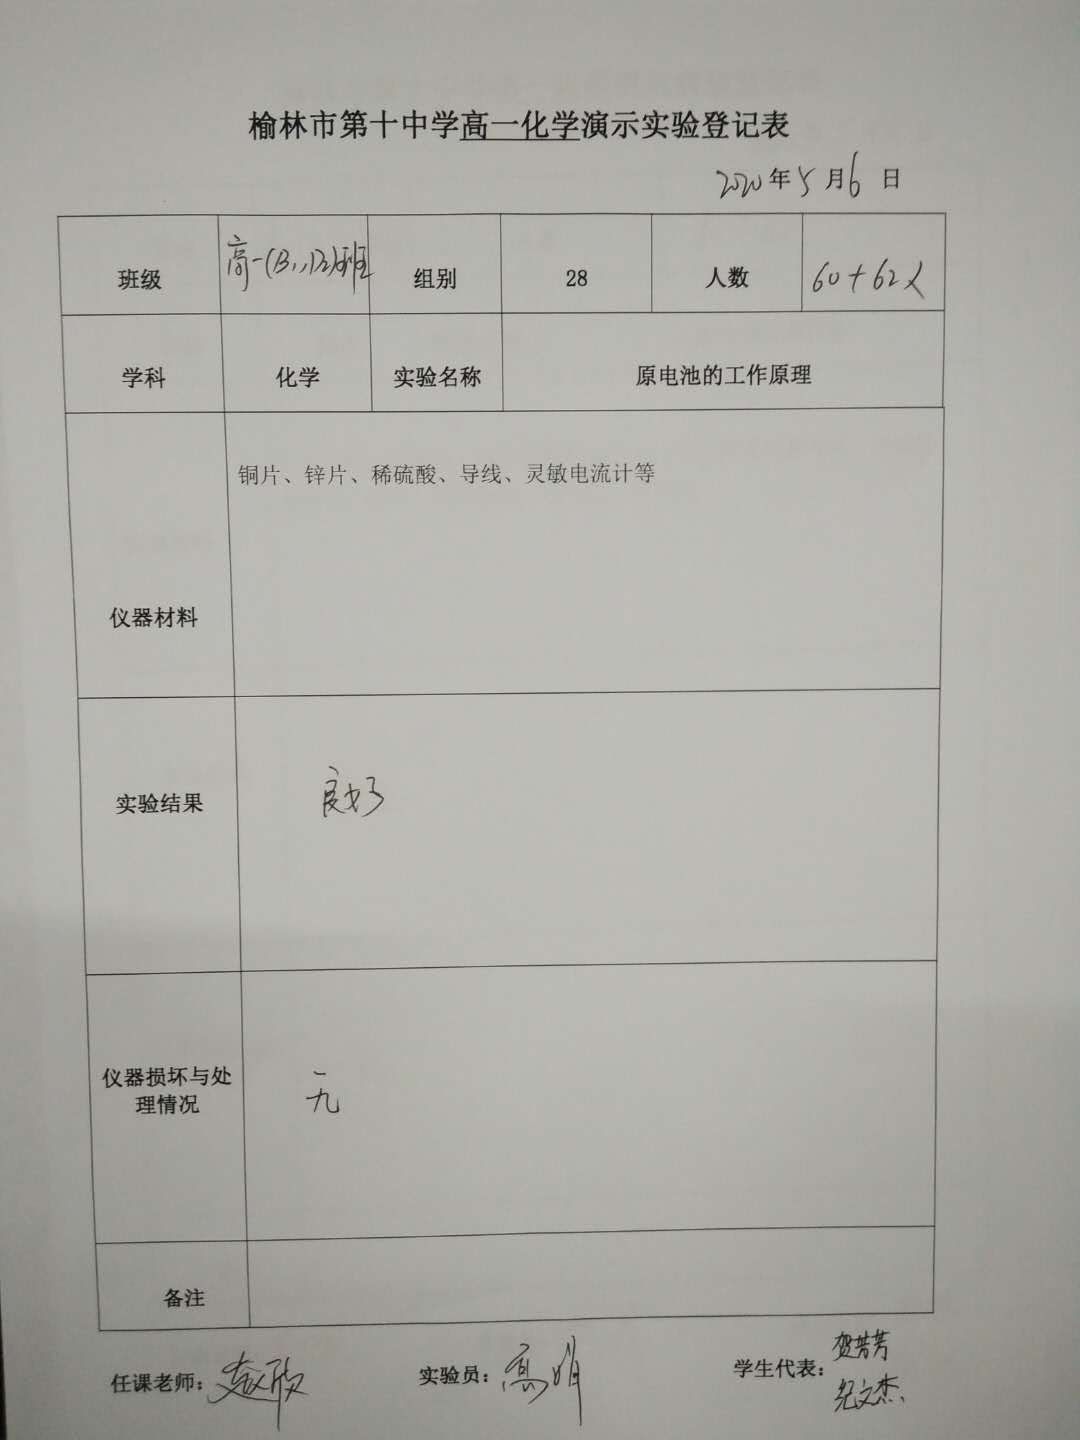 榆林市第十中学高一化学演示实验登记表
2020年5月6日
班级 高一(13、12)班 组别 28 人数 60+62人
学科 化学 实验名称 原电池的工作原理
铜片、锌片、稀硫酸、导线、灵敏电流计等
仪器材料
实验结果 良好
仪器损坏与处
理情况 无
备注
任课老师: 实验员:高娟 学生代表:贺芳芳
纪文杰